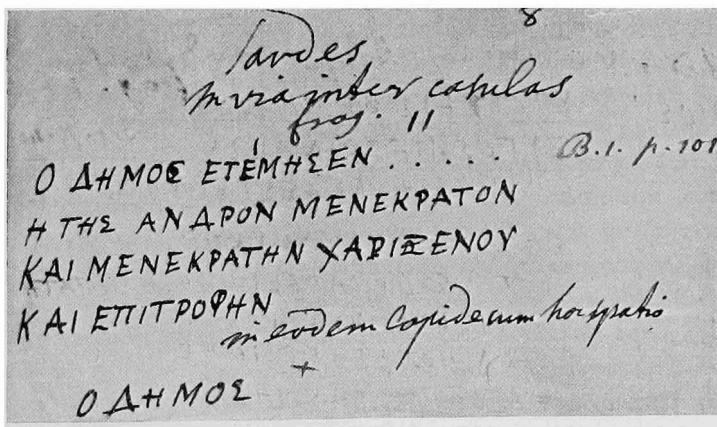 8
Sardes
in via inter casulas
frag. 11
Ο ΔΗΜΟΣ ΕΤΕΜΗΣΕΝ . . . . . B.1. p. 101
Η ΤΗΣ ΑΝΔΡΟΝ ΜΕΝΕΚΡΑΤΟΝ
ΚΑΙ ΜΕΝΕΚΡΑΤΗΝ ΧΑΡΙΞΕΝΟΥ
ΚΑΙ ΕΠΙΤΡΟΦΗΝ
in eōdem lapide cum hoc spatio
+
Ο ΔΗΜΟΣ